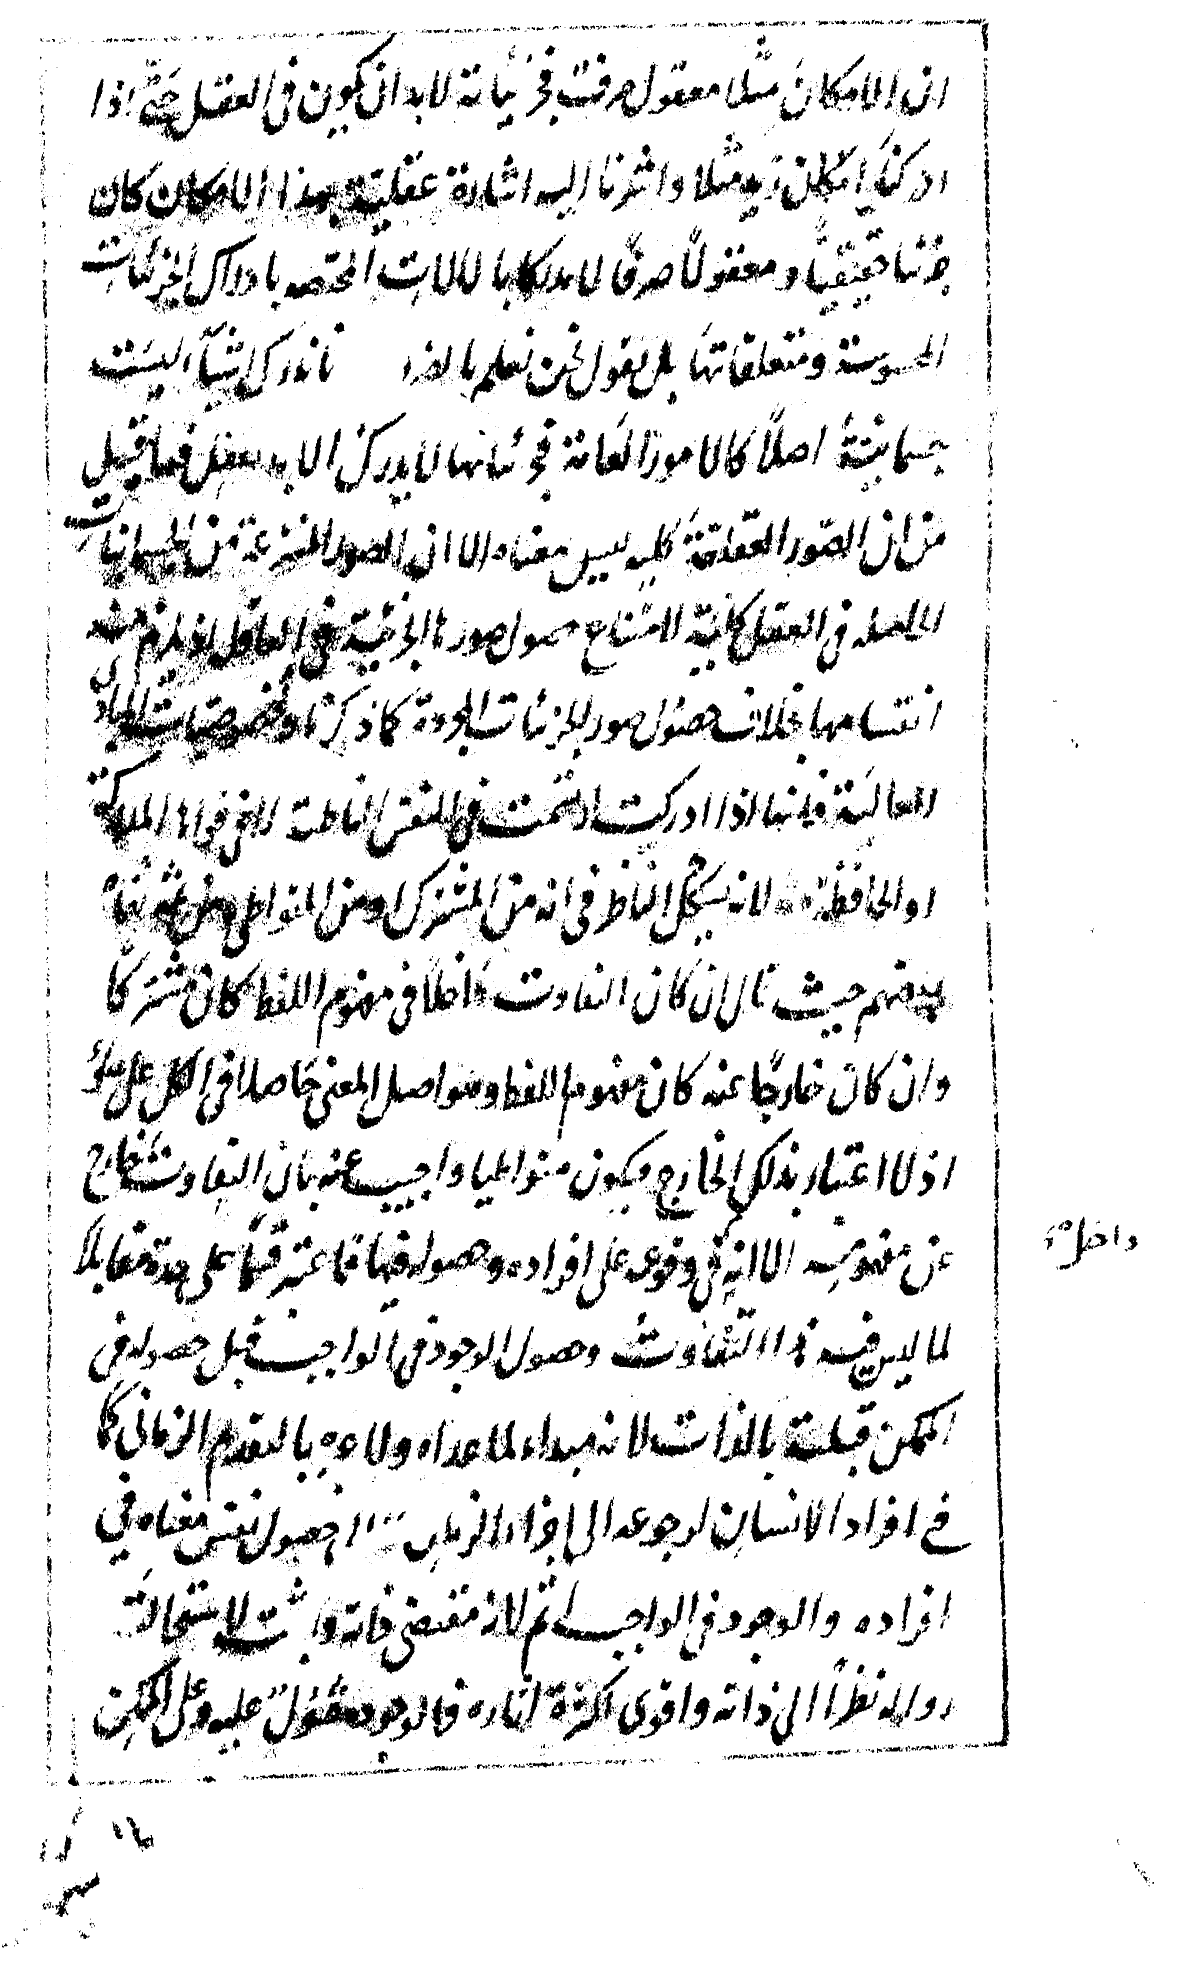 ان الامكان مثلا معقول صرفت فجزئياته لابد ان يكون فى العقل حتى اذا
ادركنا امكان زيد مثلا واشرنا اليه اشارة عقلية بهذا الامكان كان
جزئيا حقيقيا ومعقولا صرفا لا يدركها بالالات المختصه بادراك الجزئيات
المحسوسة ومتعلقاتها بل يقول نحن نعلم بالضر انا ندرك اشيآء ليست
جسمانية اصلا كالامور العامة فجزئياتها لا يدرك الا بالعقل فما قيل
من ان الصور العقلية كليه ليس معناه الا ان الصور المنتزعة من الجسمانيات
الحاصله فى العقل كلية لامتناع حصول صورها الجزئية فى العاقل اذ يلزم منه
انقسامها بخلاف حصول صور الجزئيات المجردة كما ذكرنا وخصوصيات المبادى
العالية فانها اذا ادركت ارتسمت فى النفس الناطقة لا فى قواها المدركة
او الحافظة لانه يشكل الناظر فى انه من المشترك او من المتواطى ومن ثم نفاه
بعضهم حيث قال ان كان التفاوت داخلا فى مفهوم اللفظ كان مشتركا
وان كان خارجا عنه كان مفهوم اللفظ وهو اصل المعنى حاصلا فى الكل على سواء
اذ لا اعتبار بذلك الخارج فيكون متواطيا واجيب عنه بان التفاوت خارج
عن مفهومه الا انه فى وقوعه على افراده وحصوله فيها فاعتبر قسما على حدة مقابلا
لما ليس فيه هذا التفاوت وحصول الوجود فى الواجب قبل حصوله فى
الممكن قبلية بالذات لانه مبداء لما عداه ولا عبرة بالتقدم الزمانى كما
فى افراد الانسان لرجوعه الى اجزاء الزمان لا حصول نفس معناه فى
افراده والوجود فى الواجب اتم لانه مقتضى ذاته واثبت لاستحالة
زواله نظرا الى ذاته واقوى لكثرة اثاره فالوجود مقول عليه وعلى الممكن
داخل